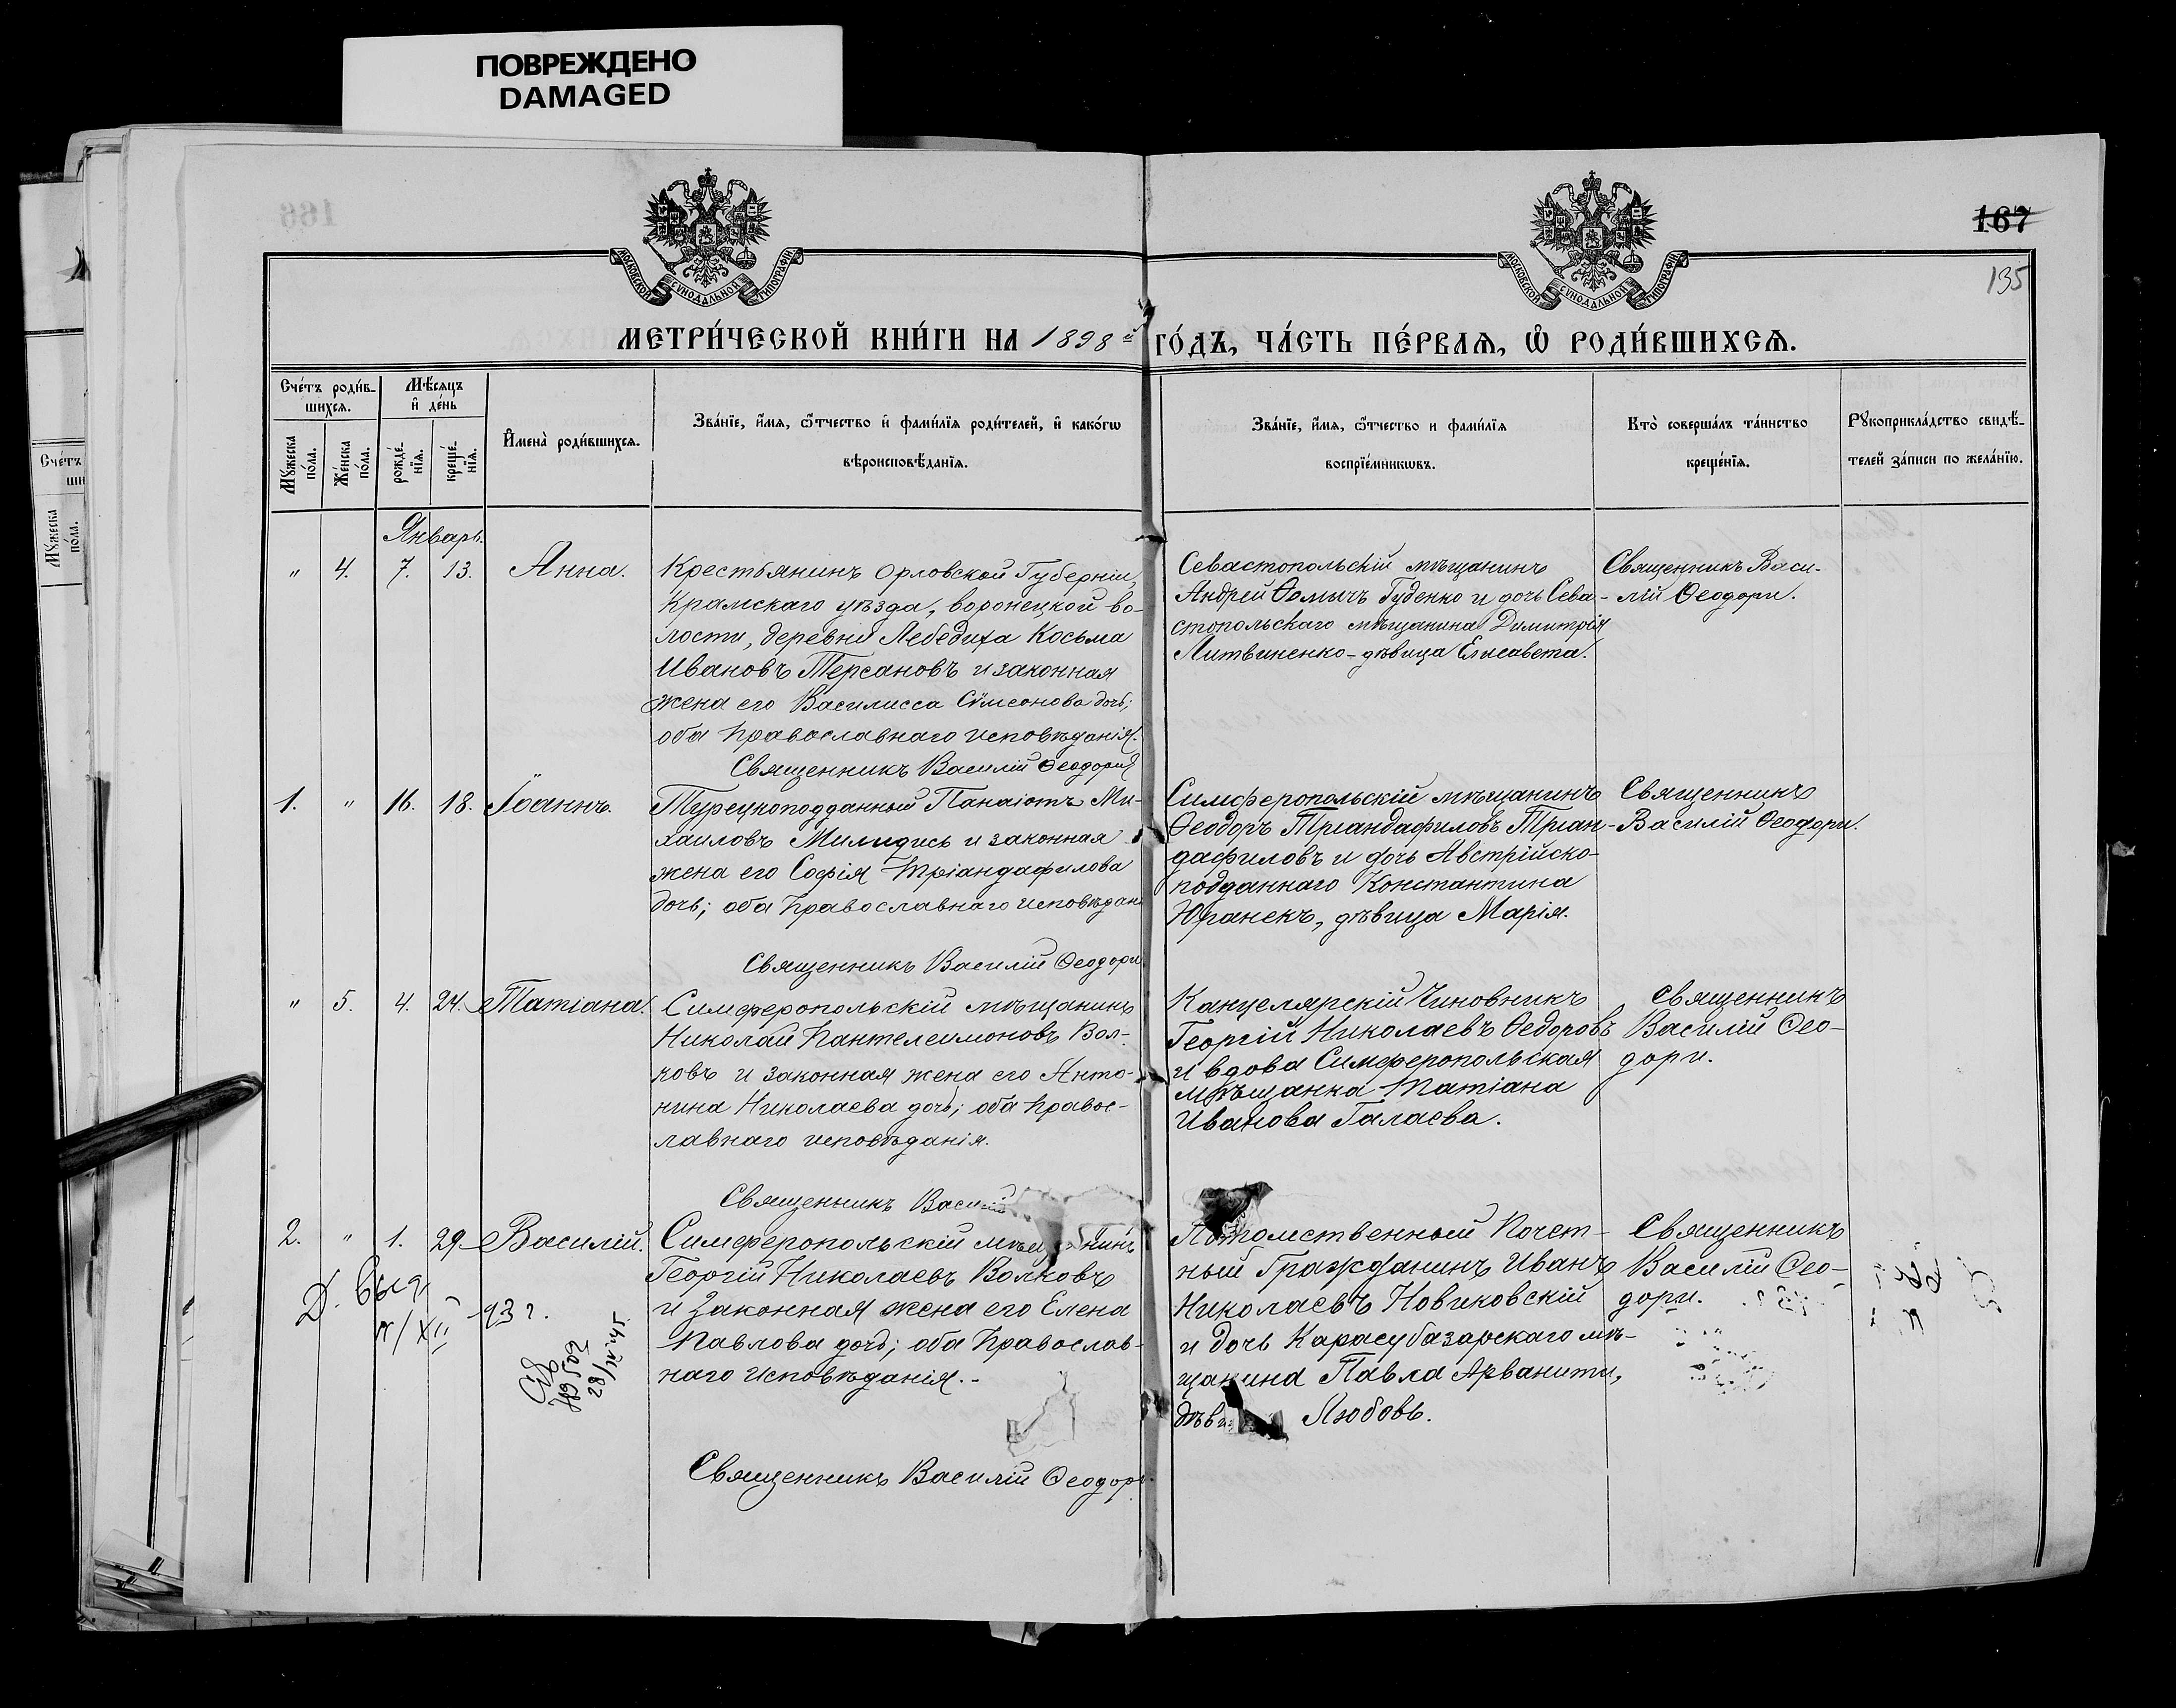 ПОВРЕЖДЕНО
DAMAGED
167
135
МОСКОВСКОЙ СУНОДАЛЬНОЙ ТИПОГРАФІИ
МОСКОВСКОЙ СУНОДАЛЬНОЙ ТИПОГРАФІИ
МЕТРИ́ЧЕСКОЙ КНИ́ГИ НА 1898й ГО́ДЪ, ЧА́СТЬ ПЕ́РВАѦ, Ѡ҆ РОДИ́ВШИХСѦ.
Сче́тъ роди́в-
шихсѧ.
Мѣ́сѧцъ
и҆ де́нь
Мꙋ́жеска
по́ла.
Же́нска
по́ла.
рожде́-
нїѧ.
креще́-
нїѧ.
И҆мена̀ роди́вшихсѧ.
Зва́нїе, и҆́мѧ, ѻ҆́тчество и҆ фами́лїѧ роди́телей, и҆ како́гѡ
вѣроисповѣ́данїѧ.
Зва́нїе, и҆́мѧ, ѻ҆́тчество и фами́лїѧ
воспрїе́мникѡвъ.
Кто̀ соверша́лъ та́инство
креще́нїѧ.
Рꙋкоприкла́дство свидѣ́-
телей за́писи по жела́нїю.
Январь.
" 4. 7. 13. Анна.
Крестьянинъ Орловской Губерніи,
Крамскаго уѣзда, воронецкой во-
лости, деревни Лебедиха Косьма
Ивановъ Терсановъ и законная
жена его Василисса Сѵмеонова дочь;
оба Православнаго исповѣданія.
Священникъ Василій Ѳеодори
Севастопольскій мѣщанинъ
Андрей Ѳомичъ Гуденко и дочь Сева-
стопольскаго мѣщанина Димитрія
Литвиненко - дѣвица Елисавета.
Священникъ Васи-
лій Ѳеодори.
1. " 16. 18. Іоаннъ.
Турецкоподданный Панаіотъ Ми-
хаиловъ Милидись и законная
жена его Софія Тріандафилова
дочь; оба Православнаго исповѣдан
Священникъ Василій Ѳеодори
Симферопольскій мѣщанинъ
Ѳеодоръ Тріандафиловъ Тріан-
дафиловъ и дочь Австрійско-
подданнаго Константина
Юранекъ, дѣвица Марія.
Священникъ
Василій Ѳеодори.
" 5. 4. 24. Татіана.
Симферопольскій мѣщанинъ
Николай Пантелеимоновъ Вол-
ковъ и законная жена его Анто-
нина Николаева дочь; оба Правос-
лавнаго исповѣданія.
Священникъ Василій
Канцелярскій Чиновникъ
Георгій Николаевъ Ѳедоровъ
и вдова Симферопольская
мѣщанка Татіана
Иванова Галаева.
Священникъ
Василій Ѳео-
дори.
2. " 1. 29. Василій.
Симферопольскій мѣщанинъ
Георгій Николаевъ Волковъ
и законная жена его Елена
Павлова дочь; оба Православ-
наго исповѣданія.-
Священникъ Василій Ѳеодори
Потомственный Почет-
ный Гражданинъ Иванъ
Николаевъ Новиковскій
и дочь Карасубазарскаго мѣ-
щанина Павла Арванити,
дѣви Любовь.
Священникъ
Василій Ѳео-
дори.
Д. выд.
43 г.
Счетъ
Мꙋ́жеска
по́ла.